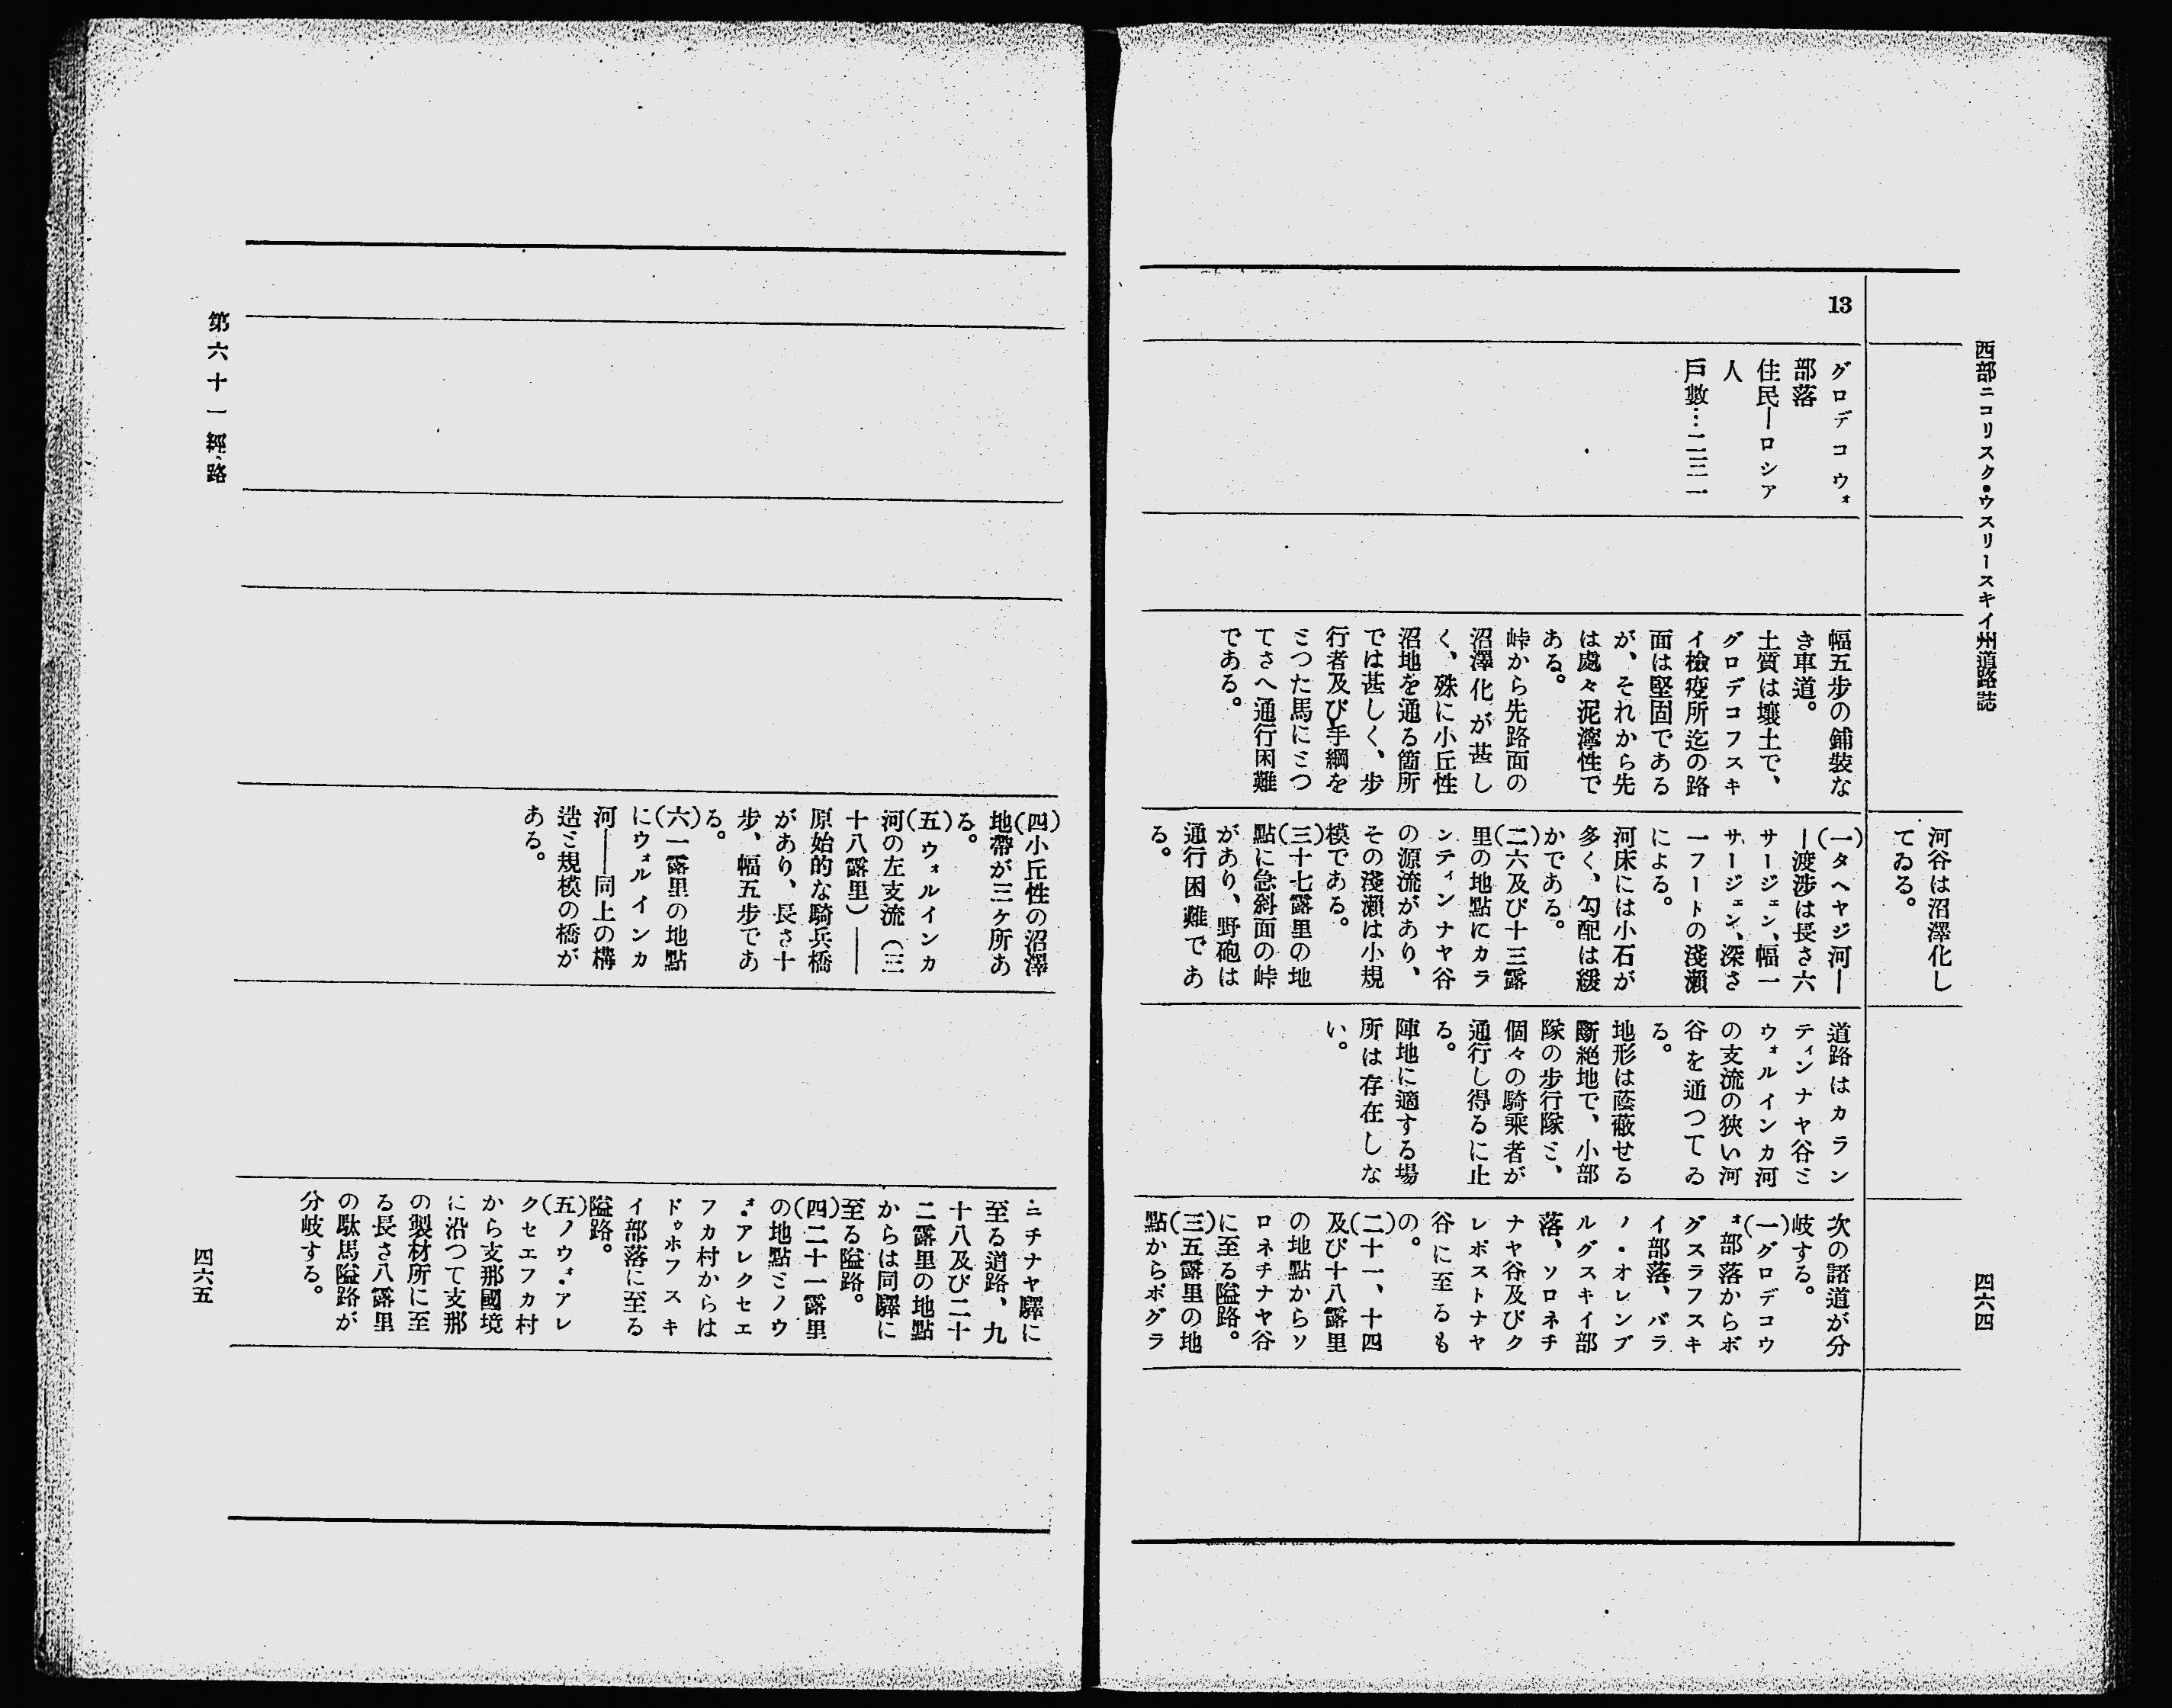 西部ニコリスク・ウスリースキイ州道路誌
四六四
河谷は沼澤化し
てゐる。
13
グロデコウォ
部落
住民ーロシア
人
戸數…二三一
幅五步の鋪裝な
き車道。
土質は壤土で、
グロデコフスキ
イ檢疫所迄の路
面は堅固である
が、それから先
は處々泥濘性で
ある。
峠から先路面の
沼澤化が甚し
く、殊に小丘性
沼地を通る箇所
では甚しく、步
行者及び手綱を
ミつた馬にミつ
てさへ通行困難
である。
(一)タヘヤジ河ー
ー渡涉は長さ六
サージェン、幅一
サージェン、深さ
一フートの淺瀨
による。
河床には小石が
多く、勾配は緩
かである。
(二)六及び十三露
里の地點にカラ
ンティンナヤ谷
の源流があり、
その淺瀨は小規
模である。
(三)十七露里の地
點に急斜面の峠
があり、野砲は
通行困難であ
る。
道路はカラン
ティンナヤ谷ミ
ウォルインカ河
の支流の狹い河
谷を通つてゐ
る。
地形は蔭蔽せる
斷絕地で、小部
隊の步行隊ミ、
個々の騎乘者が
通行し得るに止
る。
陣地に適する場
所は存在しな
い。
次の諸道が分
岐する。
(一)グロデコウ
ォ部落からボ
グスラフスキ
イ部落、バラ
ノ・オレンブ
ルグスキイ部
落、ソロネチ
ナヤ谷及びク
レポストナヤ
谷に至るも
の。
(二)十一、十四
及び十八露里
の地點からソ
ロネチナヤ谷
に至る隘路。
(三)五露里の地
點からポグラ
(四)小丘性の沼澤
地帶が三ケ所あ
る。
(五)ウォルインカ
河の左支流（三
十八露里）——
原始的な騎兵橋
があり、長さ十
步、幅五步であ
る。
(六)一露里の地點
にウォルインカ
河——同上の構
造ミ規模の橋が
ある。
ニチナヤ驛に
至る道路、九
十八及び二十
二露里の地點
からは同驛に
至る隘路。
(四)二十一露里
の地點ミノウ
ォ・アレクセエ
フカ村からは
ドゥホフスキ
イ部落に至る
隘路。
(五)ノウォ・アレ
クセエフカ村
から支那國境
に沿つて支那
の製材所に至
る長さ八露里
の駄馬隘路が
分岐する。
第六十一經路
四六五